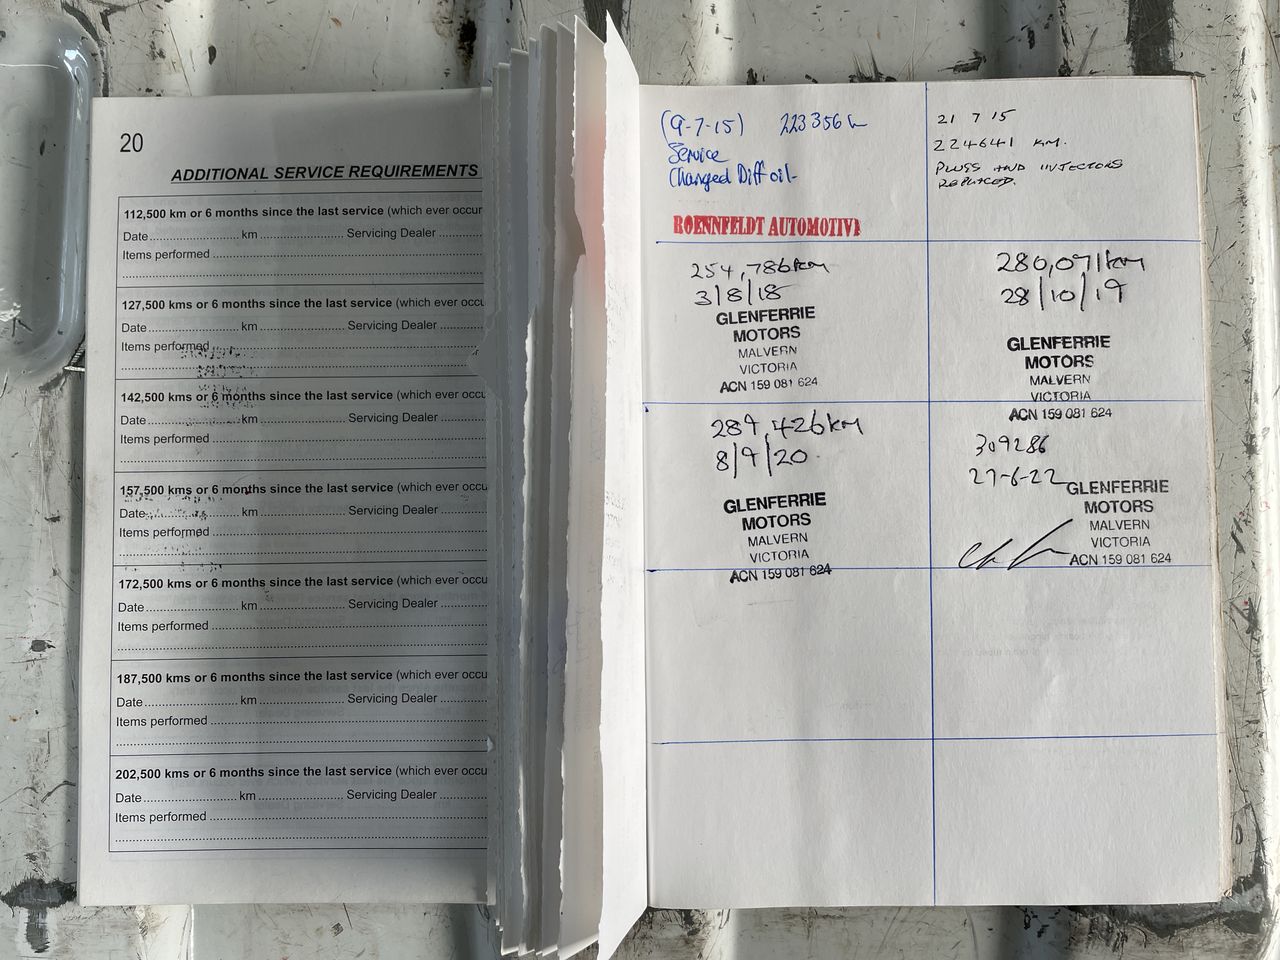 20
ADDITIONAL SERVICE REQUIREMENTS
112,500 km or 6 months since the last service (which ever occur
Date.................. km .................. Servicing Dealer ..........
Items performed ..................
127,500 kms or 6 months since the last service (which ever occu
Date.................. km .................. Servicing Dealer ..........
Items performed ..................
142,500 kms or 6 months since the last service (which ever occu
Date.................. km .................. Servicing Dealer ..........
Items performed ..................
157,500 kms or 6 months since the last service (which ever occu
Date.................. km .................. Servicing Dealer ..........
Items performed ..................
172,500 kms or 6 months since the last service (which ever occu
Date.................. km .................. Servicing Dealer ..........
Items performed ..................
187,500 kms or 6 months since the last service (which ever occu
Date.................. km .................. Servicing Dealer ..........
Items performed ..................
202,500 kms or 6 months since the last service (which ever occu
Date.................. km .................. Servicing Dealer ..........
Items performed ..................
(9-7-15) 223356
Service
Changed Diff oil-
ROENNFELDT AUTOMOTIVE
21 7 15
224641 KM.
PLUGS AND INJECTORS
REPLACED.
254,786km
3/8/18
GLENFERRIE
MOTORS
MALVERN
VICTORIA
ACN 159 081 624
280,091km
28/10/19
GLENFERRIE
MOTORS
MALVERN
VICTORIA
ACN 159 081 624
289,426km
8/9/20
GLENFERRIE
MOTORS
MALVERN
VICTORIA
ACN 159 081 624
309286
27-6-22
GLENFERRIE
MOTORS
MALVERN
VICTORIA
ACN 159 081 624